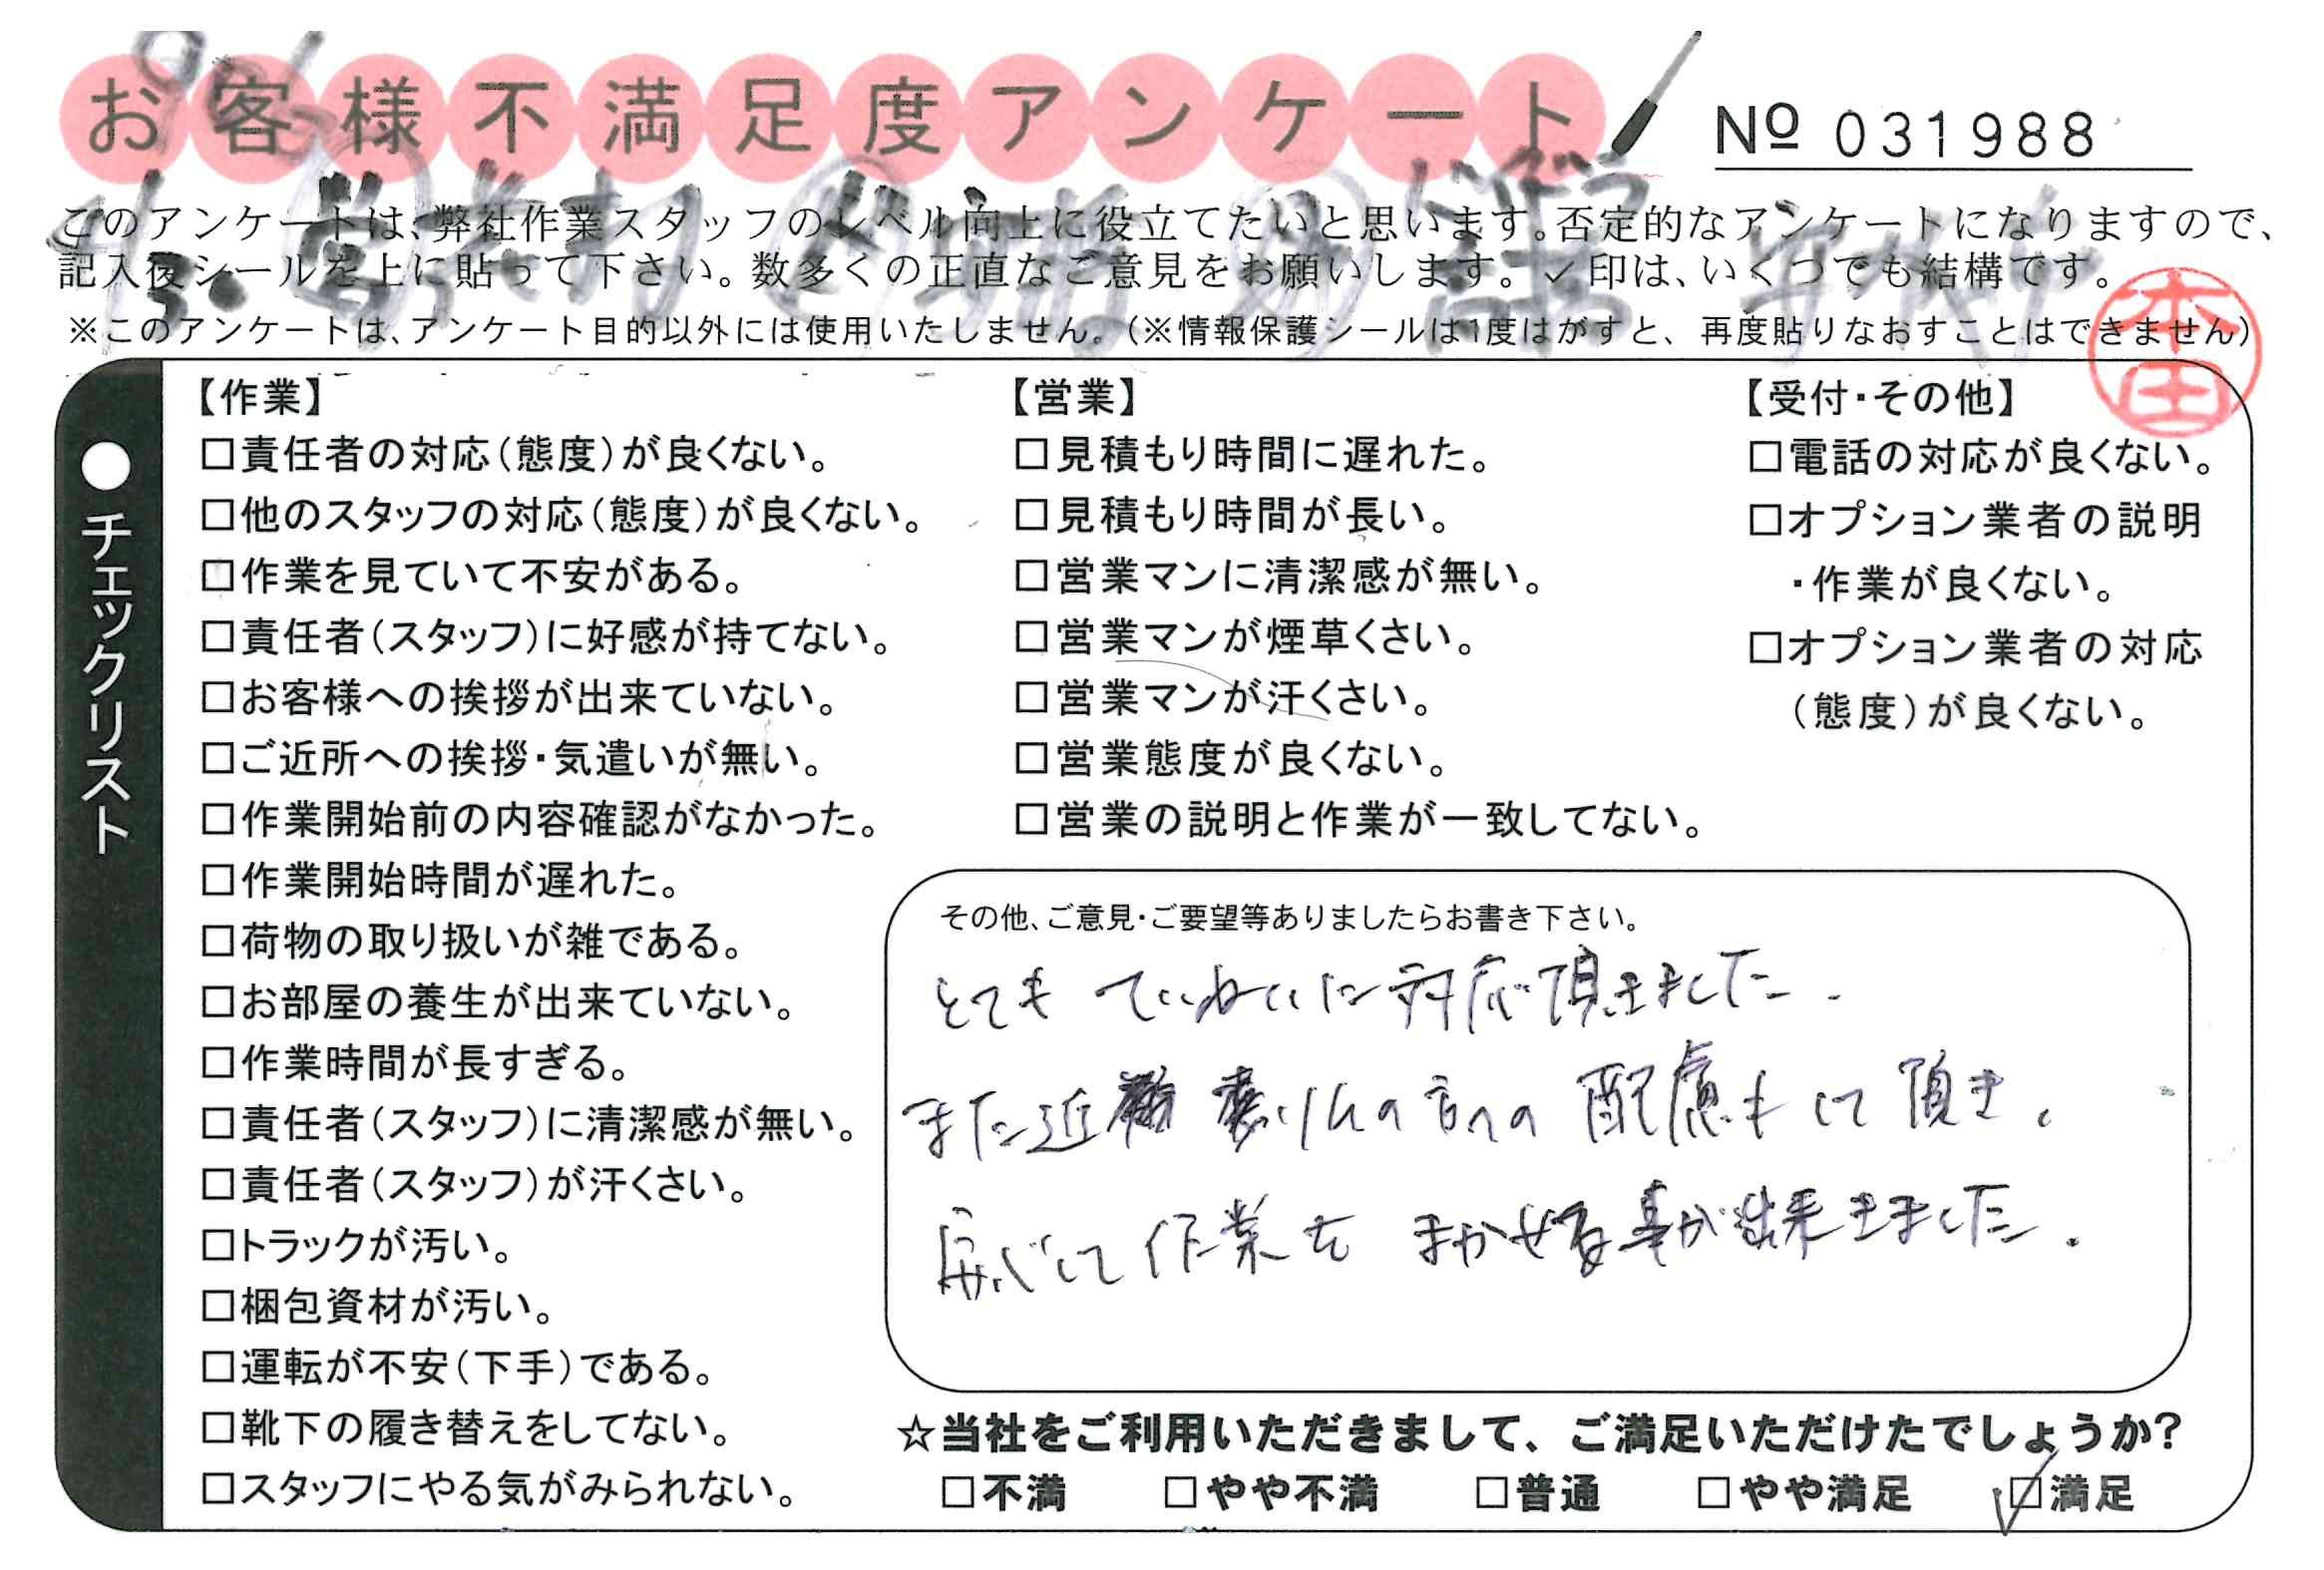 お客様不満足度アンケート
№ 031988
このアンケートは、弊社作業スタッフのレベル向上に役立てたいと思います。否定的なアンケートになりますので、
記入後シールを上に貼って下さい。数多くの正直なご意見をお願いします。✓印は、いくつでも結構です。
※このアンケートは、アンケート目的以外には使用いたしません。(※情報保護シールは1度はがすと、再度貼りなおすことはできません)
本田
●チェックリスト
【作業】
□責任者の対応(態度)が良くない。
□他のスタッフの対応(態度)が良くない。
□作業を見ていて不安がある。
□責任者(スタッフ)に好感が持てない。
□お客様への挨拶が出来ていない。
□ご近所への挨拶・気遣いが無い。
□作業開始前の内容確認がなかった。
□作業開始時間が遅れた。
□荷物の取り扱いが雑である。
□お部屋の養生が出来ていない。
□作業時間が長すぎる。
□責任者(スタッフ)に清潔感が無い。
□責任者(スタッフ)が汗くさい。
□トラックが汚い。
□梱包資材が汚い。
□運転が不安(下手)である。
□靴下の履き替えをしてない。
□スタッフにやる気がみられない。
【営業】
□見積もり時間に遅れた。
□見積もり時間が長い。
□営業マンに清潔感が無い。
□営業マンが煙草くさい。
□営業マンが汗くさい。
□営業態度が良くない。
□営業の説明と作業が一致してない。
【受付・その他】
□電話の対応が良くない。
□オプション業者の説明
・作業が良くない。
□オプション業者の対応
(態度)が良くない。
その他、ご意見・ご要望等ありましたらお書き下さい。
とても ていねいに対応頂きました.
また近 の方への 配慮もして頂き、
して作業を まかせる事が出来きました.
☆当社をご利用いただきまして、ご満足いただけたでしょうか?
□不満 □やや不満 □普通 □やや満足 ☑満足